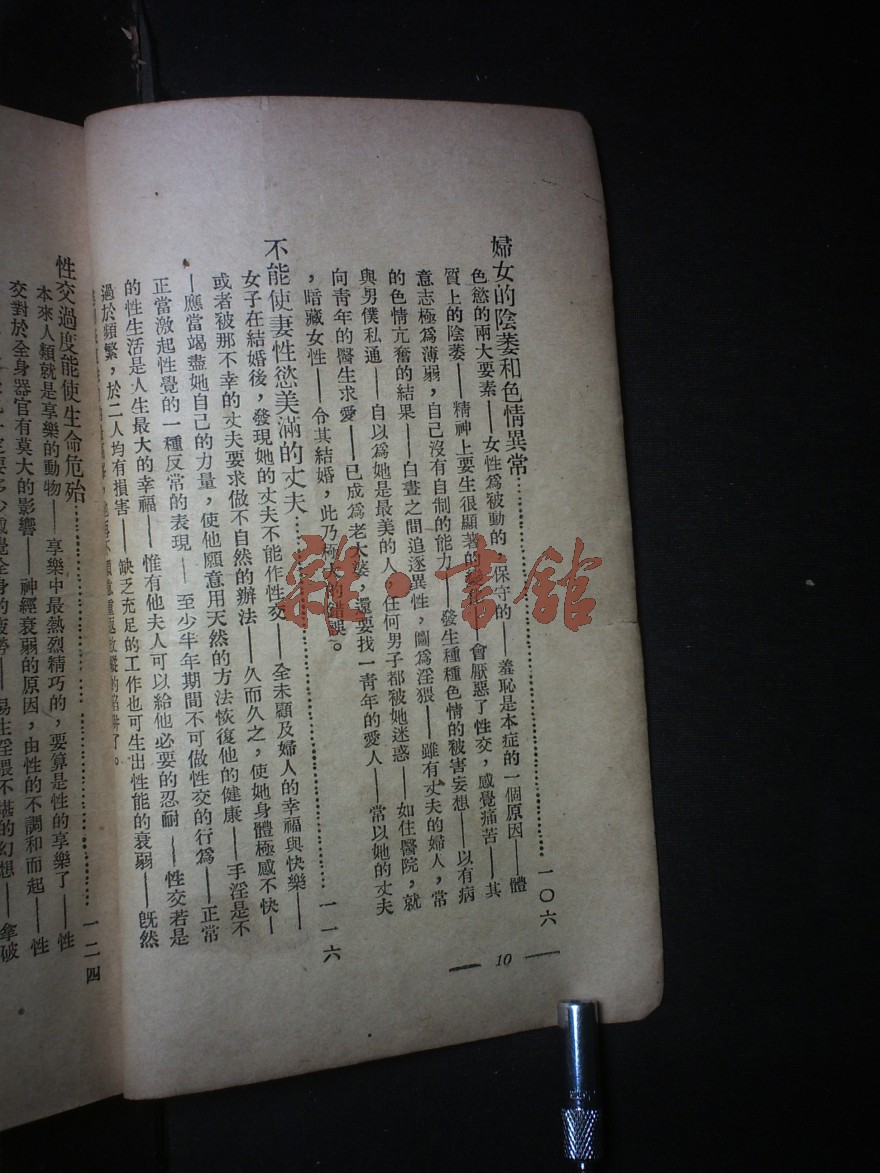 婦女的陰萎和色情異常……一〇六
色慾的兩大要素——女性爲被動的,保守的——羞恥是本症的一個原因——體
質上的陰萎——精神上要生很顯著的——會厭惡了性交,感覺痛苦——其
意志極爲薄弱,自己沒有自制的能力——發生種種色情的被害妄想——以有病
的色情亢奮的結果——白晝之間追逐異性,圖爲淫猥——雖有丈夫的婦人,常
與男僕私通——自以爲她是最美的人,任何男子都被她迷惑——如住醫院,就
向青年的醫生求愛——已成爲老太婆,還要找一青年的愛人——常以她的丈夫
,暗藏女性——令其結婚,此乃極大的錯誤。
不能使妻性慾美滿的丈夫……一一六
女子在結婚後,發現她的丈夫不能作性交——全未顧及婦人的幸福與快樂——
或者被那不幸的丈夫要求做不自然的辦法——久而久之,使她身體極感不快——
—應當竭盡她自己的力量,使他願意用天然的方法恢復他的健康——手淫是不
正當激起性覺的一種反常的表現——至少半年期間不可做性交的行爲——正常
的性生活是人生最大的幸福——惟有他夫人可以給他必要的忍耐——性交若是
過於頻繁,於二人均有損害——缺乏充足的工作也可生出性能的衰弱——既然
的陷阱了。
10
性交過度能使生命危殆……一二四
本來人類就是享樂的動物——享樂中最熱烈精巧的,要算是性的享樂了——性
交對於全身器官有莫大的影響——神經衰弱的原因,由性的不調和而起——性
感覺全身的疲勞——易生淫猥不堪的幻想——拿破
雜·書館